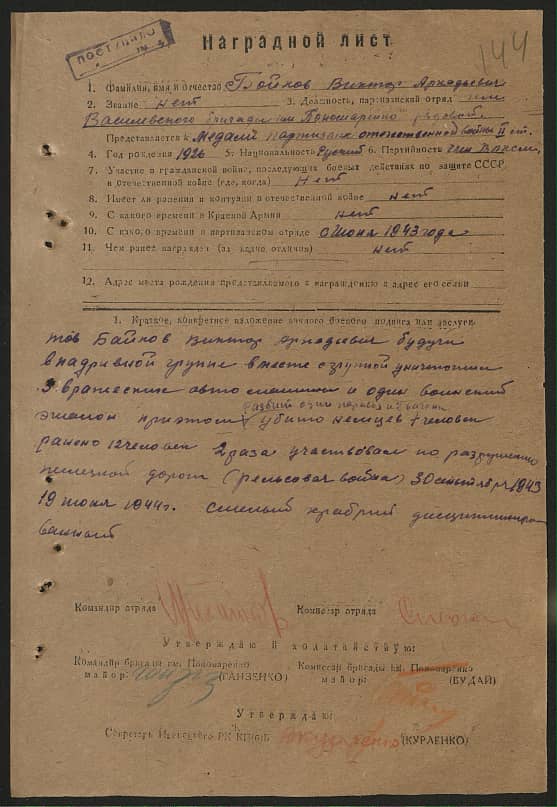 ПОСТУПИЛО
144
Наградной лист
1. Фамилия, имя и отчество Бойков Виктор Аркадьевич
2. Звание нет 3. Должность, партизанский отряд им.
бригады им Пономаренко рядовой.
Представляется к Медали партизана отечественной войны II ст.
4. Год рождения 1926 5. Национальность Русский 6. Партийность член ВЛКСМ
7. Участие в гражданской войне, последующих боевых действиях по защите СССР
и Отечественной войне (где, когда) Нет
8. Имеет ли ранения и контузии в отечественной войне нет
9. С какого времени в Красной Армии нет
10. С какого времени в партизанском отряде с Июня 1943 года
11. Чем ранее награжден (за какие отличия) нет
12. Адрес места рождения представляемого к награждению и адрес его семьи
1. Краткое, конкретное изложение личного боевого подвига или заслуг
тов Байков Виктор Аркадьевич будучи
в подривной группе вместе с групой уничтожил
3 вражеские авто машини и один воинский
разбит один паровоз и вагона
эшалон приэтом убито немцев 7 человек
ранено 12 человек 2 раза участвовал по разрушению
железной дороги (рельсовая война) 30 сентября 1943
19 июня 1944г. смелый храбрий дисциплиниро
ванный
Командир отряда Комиссар отряда
Утверждаю и ходатайствую:
Командир бригады им. Пономаренко Комиссар бригады им. Пономаренко
майор: (ГАНЗЕНКО) майор: (БУДАЙ)
Утверждаю:
Секретарь Ивенецкого РК КП(б)Б Курленко (КУРЛЕНКО)